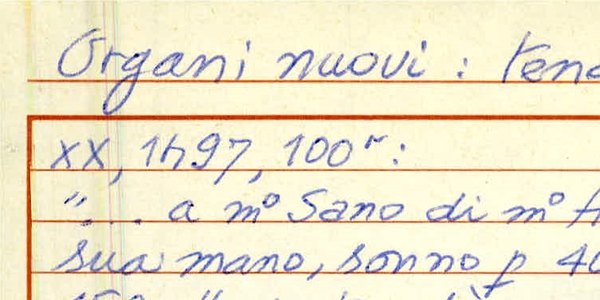 Organi nuovi :
XX, 1497, 100r:
"... a mo Sano di mo
sua mano, sonno p 40